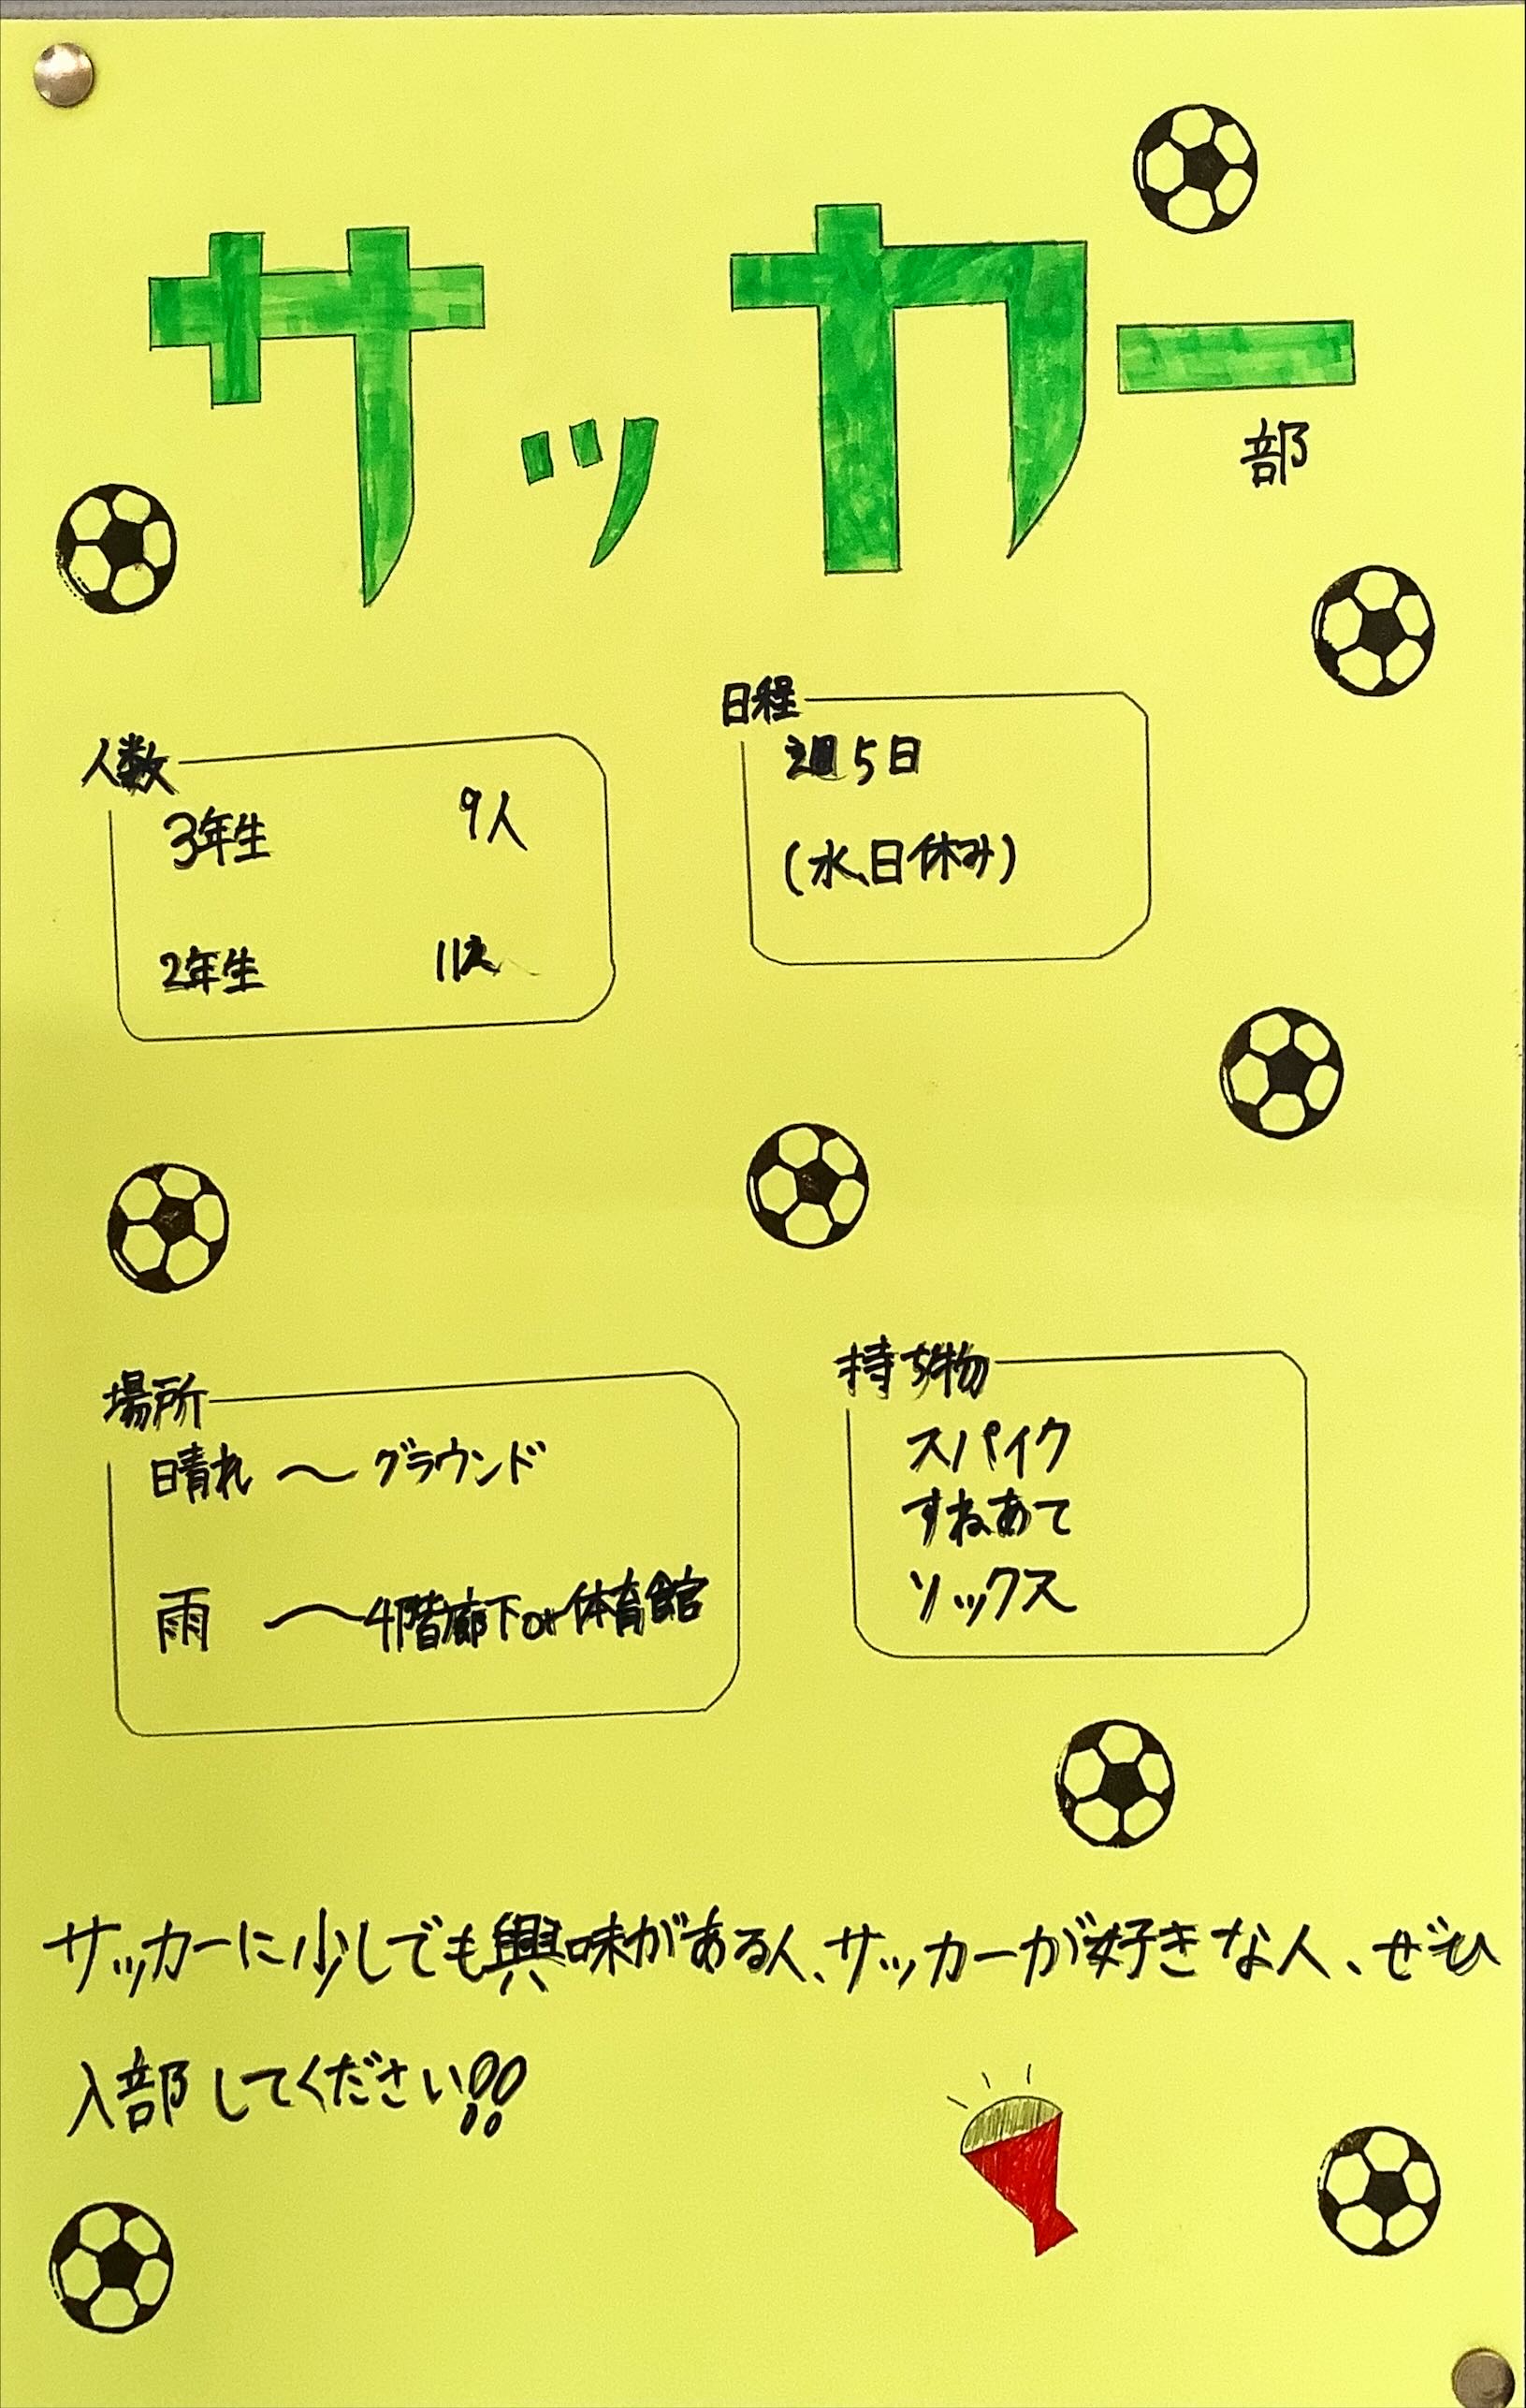 サッカー
部
人数
3年生 9人
2年生 11人
日程
週5日
(水、日休み)
場所
晴れ 〜 グラウンド
雨 〜 4階廊下or体育館
持ち物
スパイク
すねあて
ソックス
サッカーに少しでも興味がある人、サッカーが好きな人、ぜひ
入部してください!!